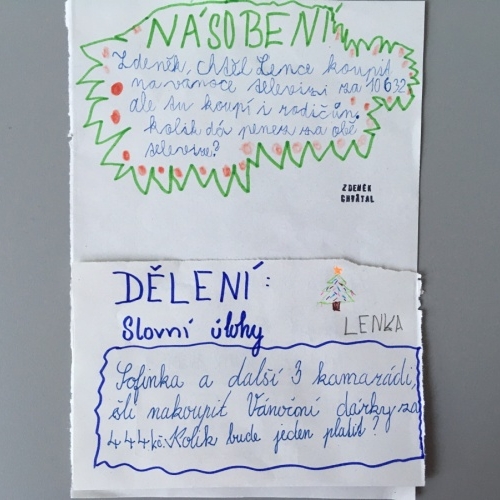 NÁSOBENÍ
Zdeněk, chtěl Lence koupit
na vánoce televizi za 10632
ale tu koupí i rodičům.
kolik dá peněz za obě
televize?
ZDENĚK
CHVÁTAL
DĚLENÍ:
Slovní úlohy
LENKA
Sofinka a další 3 kamarádi,
šli nakoupit Vánoční dárky za
444kč. Kolik bude jeden platit?